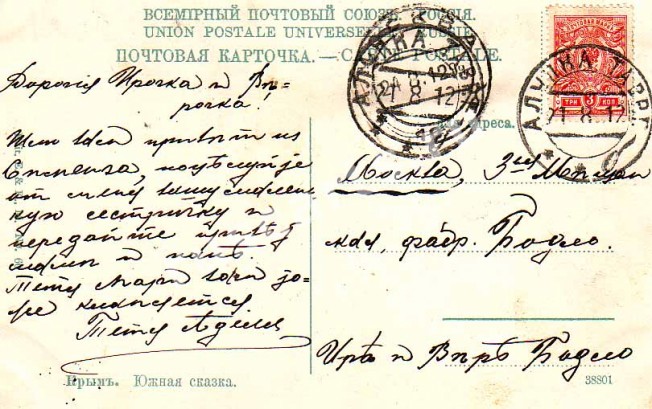 ВСЕМІРНЫЙ ПОЧТОВЫЙ СОЮЗЪ. РОССІЯ.
UNION POSTALE UNIVERSELLE. RUSSIE.
ПОЧТОВАЯ КАРТОЧКА. — CARTE POSTALE.
АЛУПКА ТАВР.
21 8 12
АЛУПКА ТАВР.
21 8 12
ТРИ 3 КОП
адреса.
Дорогія Ирочка и Вѣ-
рочка!
Шлю вам привѣт из
поцѣлуйте
от меня вашу малень-
кую сестричку и
передайте привѣт
маме и папѣ.
Тетя вам то-
же кланяется
Тетя Аделя
Москва, 3ая
фабр. Бодло.
Ирѣ и Вѣрѣ Бодло
Крымъ. Южная сказка.
38801